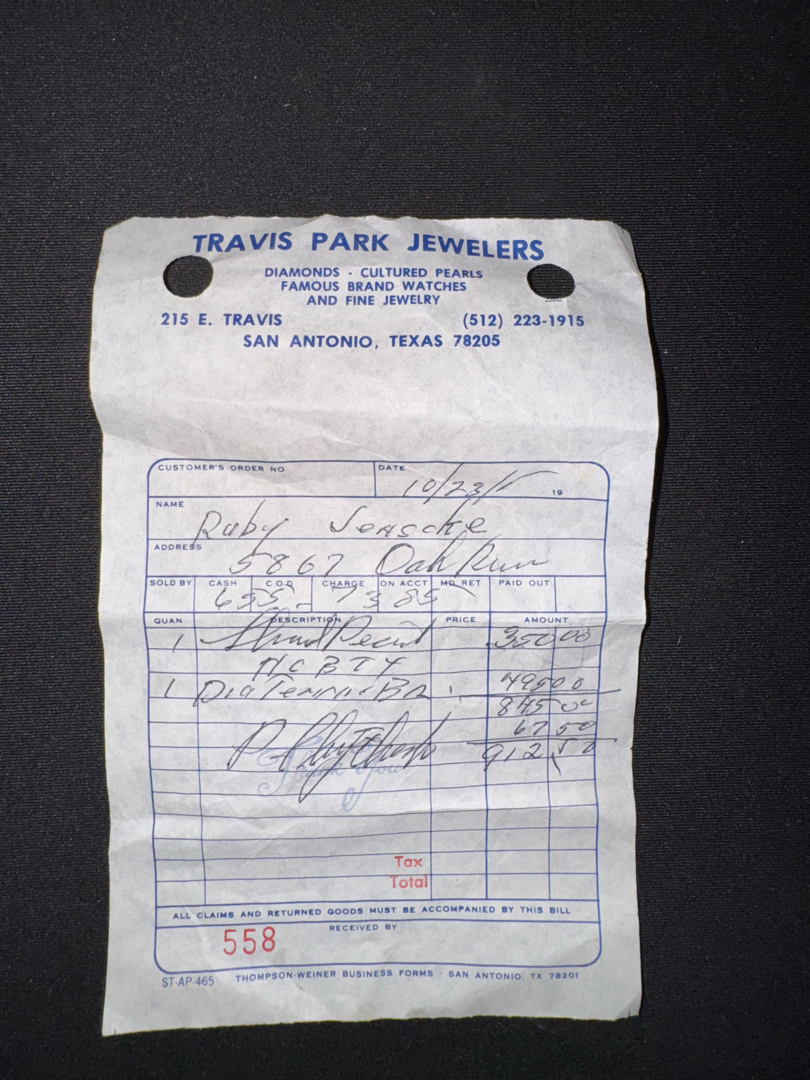 TRAVIS PARK JEWELERS
DIAMONDS - CULTURED PEARLS
FAMOUS BRAND WATCHES
AND FINE JEWELRY
215 E. TRAVIS (512) 223-1915
SAN ANTONIO, TEXAS 78205
CUSTOMER'S ORDER NO DATE 10/23/ 19
NAME Ruby
ADDRESS 5867 Oak Run
SOLD BY CASH C.O.D. CHARGE ON ACCT MD RET PAID OUT
655 -
QUAN DESCRIPTION PRICE AMOUNT
1 350 00
1 Dia Tennis 495 00
845 00
67 50
912 50
Thank You
Tax
Total
ALL CLAIMS AND RETURNED GOODS MUST BE ACCOMPANIED BY THIS BILL
558 RECEIVED BY
ST-AP-465 THOMPSON-WEINER BUSINESS FORMS · SAN ANTONIO, TX 78201